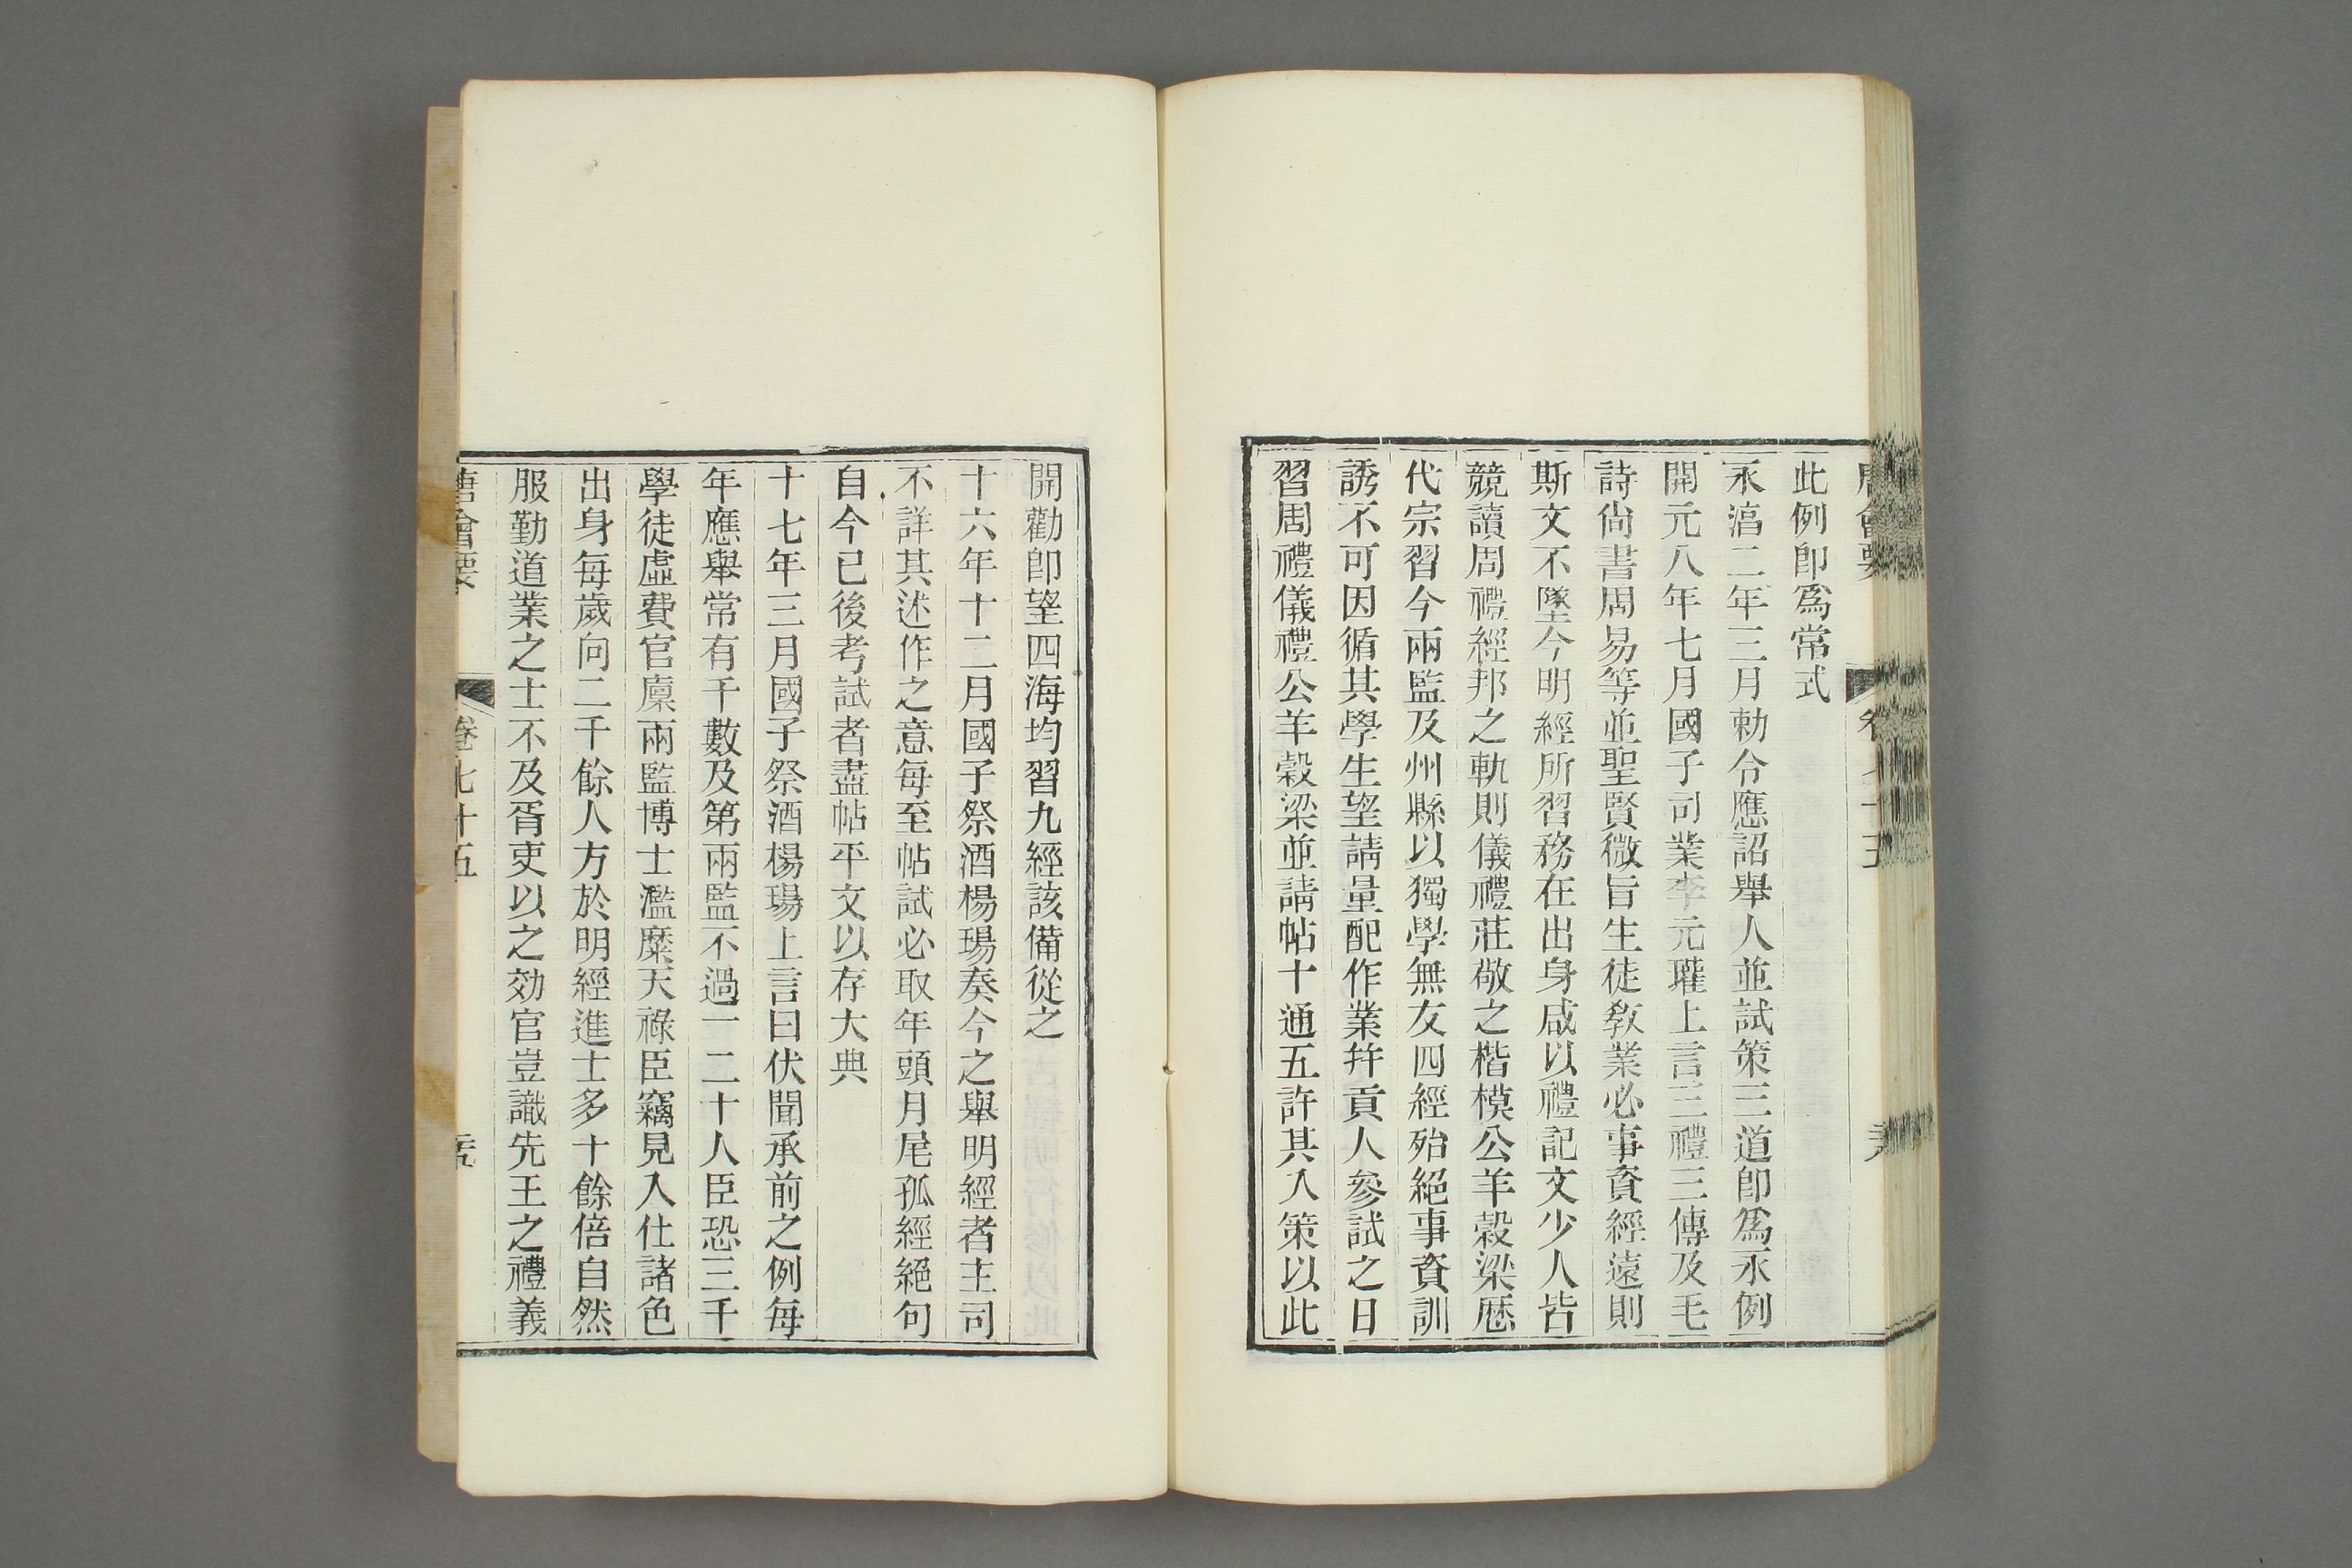 此例卽爲常式
永湻二年三月勅令應詔舉人並試策三道卽爲永例
開元八年七月國子司業李元瓘上言三禮三傳及毛
詩尙書周易等並聖賢微旨生徒敎業必事資經遠則
斯文不墜今明經所習務在出身咸以禮記文少人皆
競讀周禮經邦之軌則儀禮莊敬之楷模公羊穀梁歷
代宗習今兩監及州縣以獨學無友四經殆絕事資訓
誘不可因循其學生望請量配作業并貢人參試之日
習周禮儀禮公羊穀梁並請帖十通五許其入策以此
開勸卽望四海均習九經該備從之
十六年十二月國子祭酒楊瑒奏今之舉明經者主司
不詳其述作之意每至帖試必取年頭月尾孤經絕句
自今已後考試者盡帖平文以存大典
十七年三月國子祭酒楊瑒上言曰伏聞承前之例每
年應舉常有千數及第兩監不過一二十人臣恐三千
學徒虛費官廩兩監博士濫糜天祿臣竊見入仕諸色
出身每歲向二千餘人方於明經進士多十餘倍自然
服勤道業之士不及胥吏以之効官豈識先王之禮義
唐會要
卷七十五